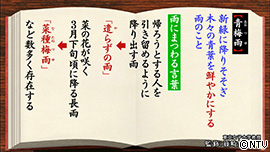 青梅雨
新緑に降りそそぎ
木々の青葉を鮮やかにする
雨のこと
雨にまつわる言葉
帰ろうとする人を
引き留めるように
降り出す雨
「遣らずの雨」
菜の花が咲く
3月下旬頃に降る長雨
「菜種梅雨」
など数多く存在する
©NTV